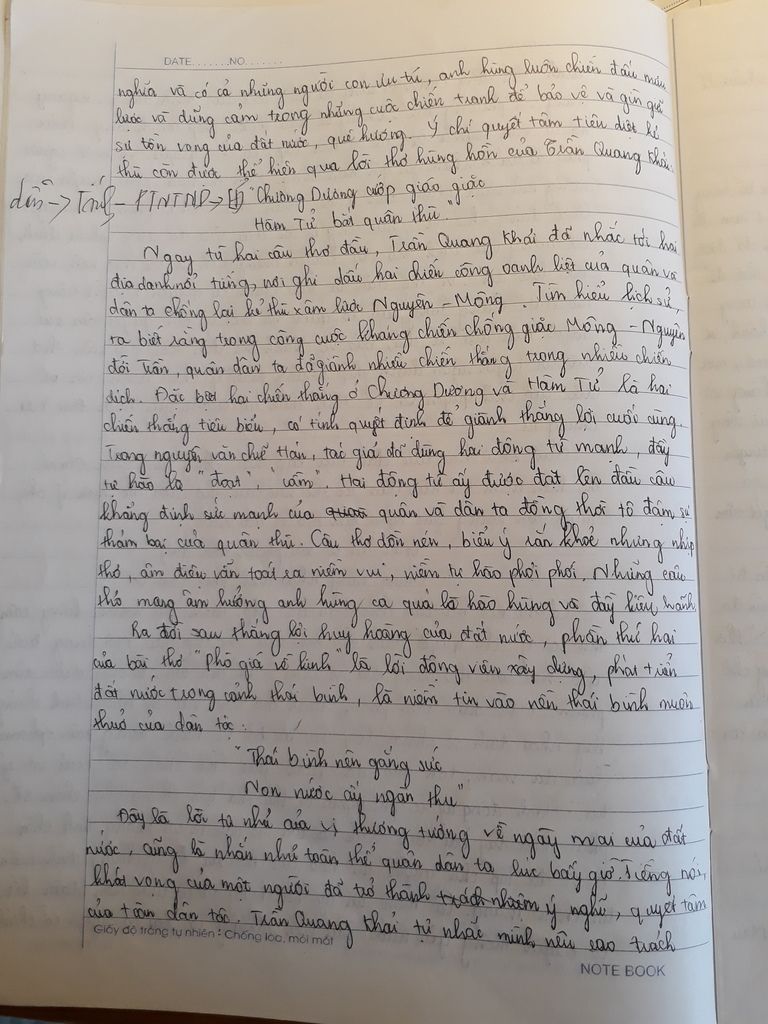 DATE.......NO.......
nghĩa và có cả những người con ưu tú, anh hùng luôn chiến đấu mưu
lược và dũng cảm trong những cuộc chiến tranh để bảo vệ và gìn giữ
sự tồn vong của đất nước, quê hương. Ý chí quyết tâm tiêu diệt kẻ
thù còn được thể hiện qua lời thơ hùng hồn của Trần Quang Khải.
dẫn ->
"Chương Dương cướp giáo giặc
Hàm Tử bắt quân thù"
Ngay từ hai câu thơ đầu, Trần Quang Khải đã nhắc tới hai
địa danh nổi tiếng, nơi ghi dấu hai chiến công oanh liệt của quân và
dân ta chống lại kẻ thù xâm lược Nguyên - Mông. Tìm hiểu lịch sử,
ta biết rằng trong công cuộc kháng chiến chống giặc Mông - Nguyên
đời Trần, quân dân ta đã giành nhiều chiến thắng trong nhiều chiến
dịch. Đặc biệt hai chiến thắng ở Chương Dương và Hàm Tử là hai
chiến thắng tiêu biểu, có tính quyết định để giành thắng lợi cuối cùng.
Trong nguyên văn chữ Hán, tác giả đã dùng hai động từ mạnh, đầy
tự hào là "đoạt", "cầm". Hai động từ ấy được đặt lên đầu câu
khẳng định sức mạnh của quân và dân ta đồng thời tô đậm sự
thảm bại của quân thù. Câu thơ dồn nén, biểu ý rắn khoẻ nhưng nhịp
thơ, âm điệu vẫn toát ra niềm vui, niềm tự hào phơi phới. Những câu
thơ mang âm hưởng anh hùng ca quả là hào hùng và đầy kiêu hãnh.
Ra đời sau thắng lợi huy hoàng của đất nước, phần thứ hai
của bài thơ "phò giá về kinh" là lời động viên xây dựng, phát triển
đất nước trong cảnh thái bình, là niềm tin vào nền thái bình muôn
thuở của dân tộc:
"Thái bình nên gắng sức
Non nước ấy ngàn thu"
Đây là lời tự nhủ của vị thượng tướng về ngày mai của đất
nước, cũng là nhắn nhủ toàn thể quân dân ta lúc bấy giờ. Tiếng nói,
khát vọng của một người đã trở thành ý nghĩ, quyết tâm
của toàn dân tộc. Trần Quang Khải tự nhắc mình nêu cao trách
Giấy độ trắng tự nhiên: Chống lóa, mỏi mắt
NOTE BOOK